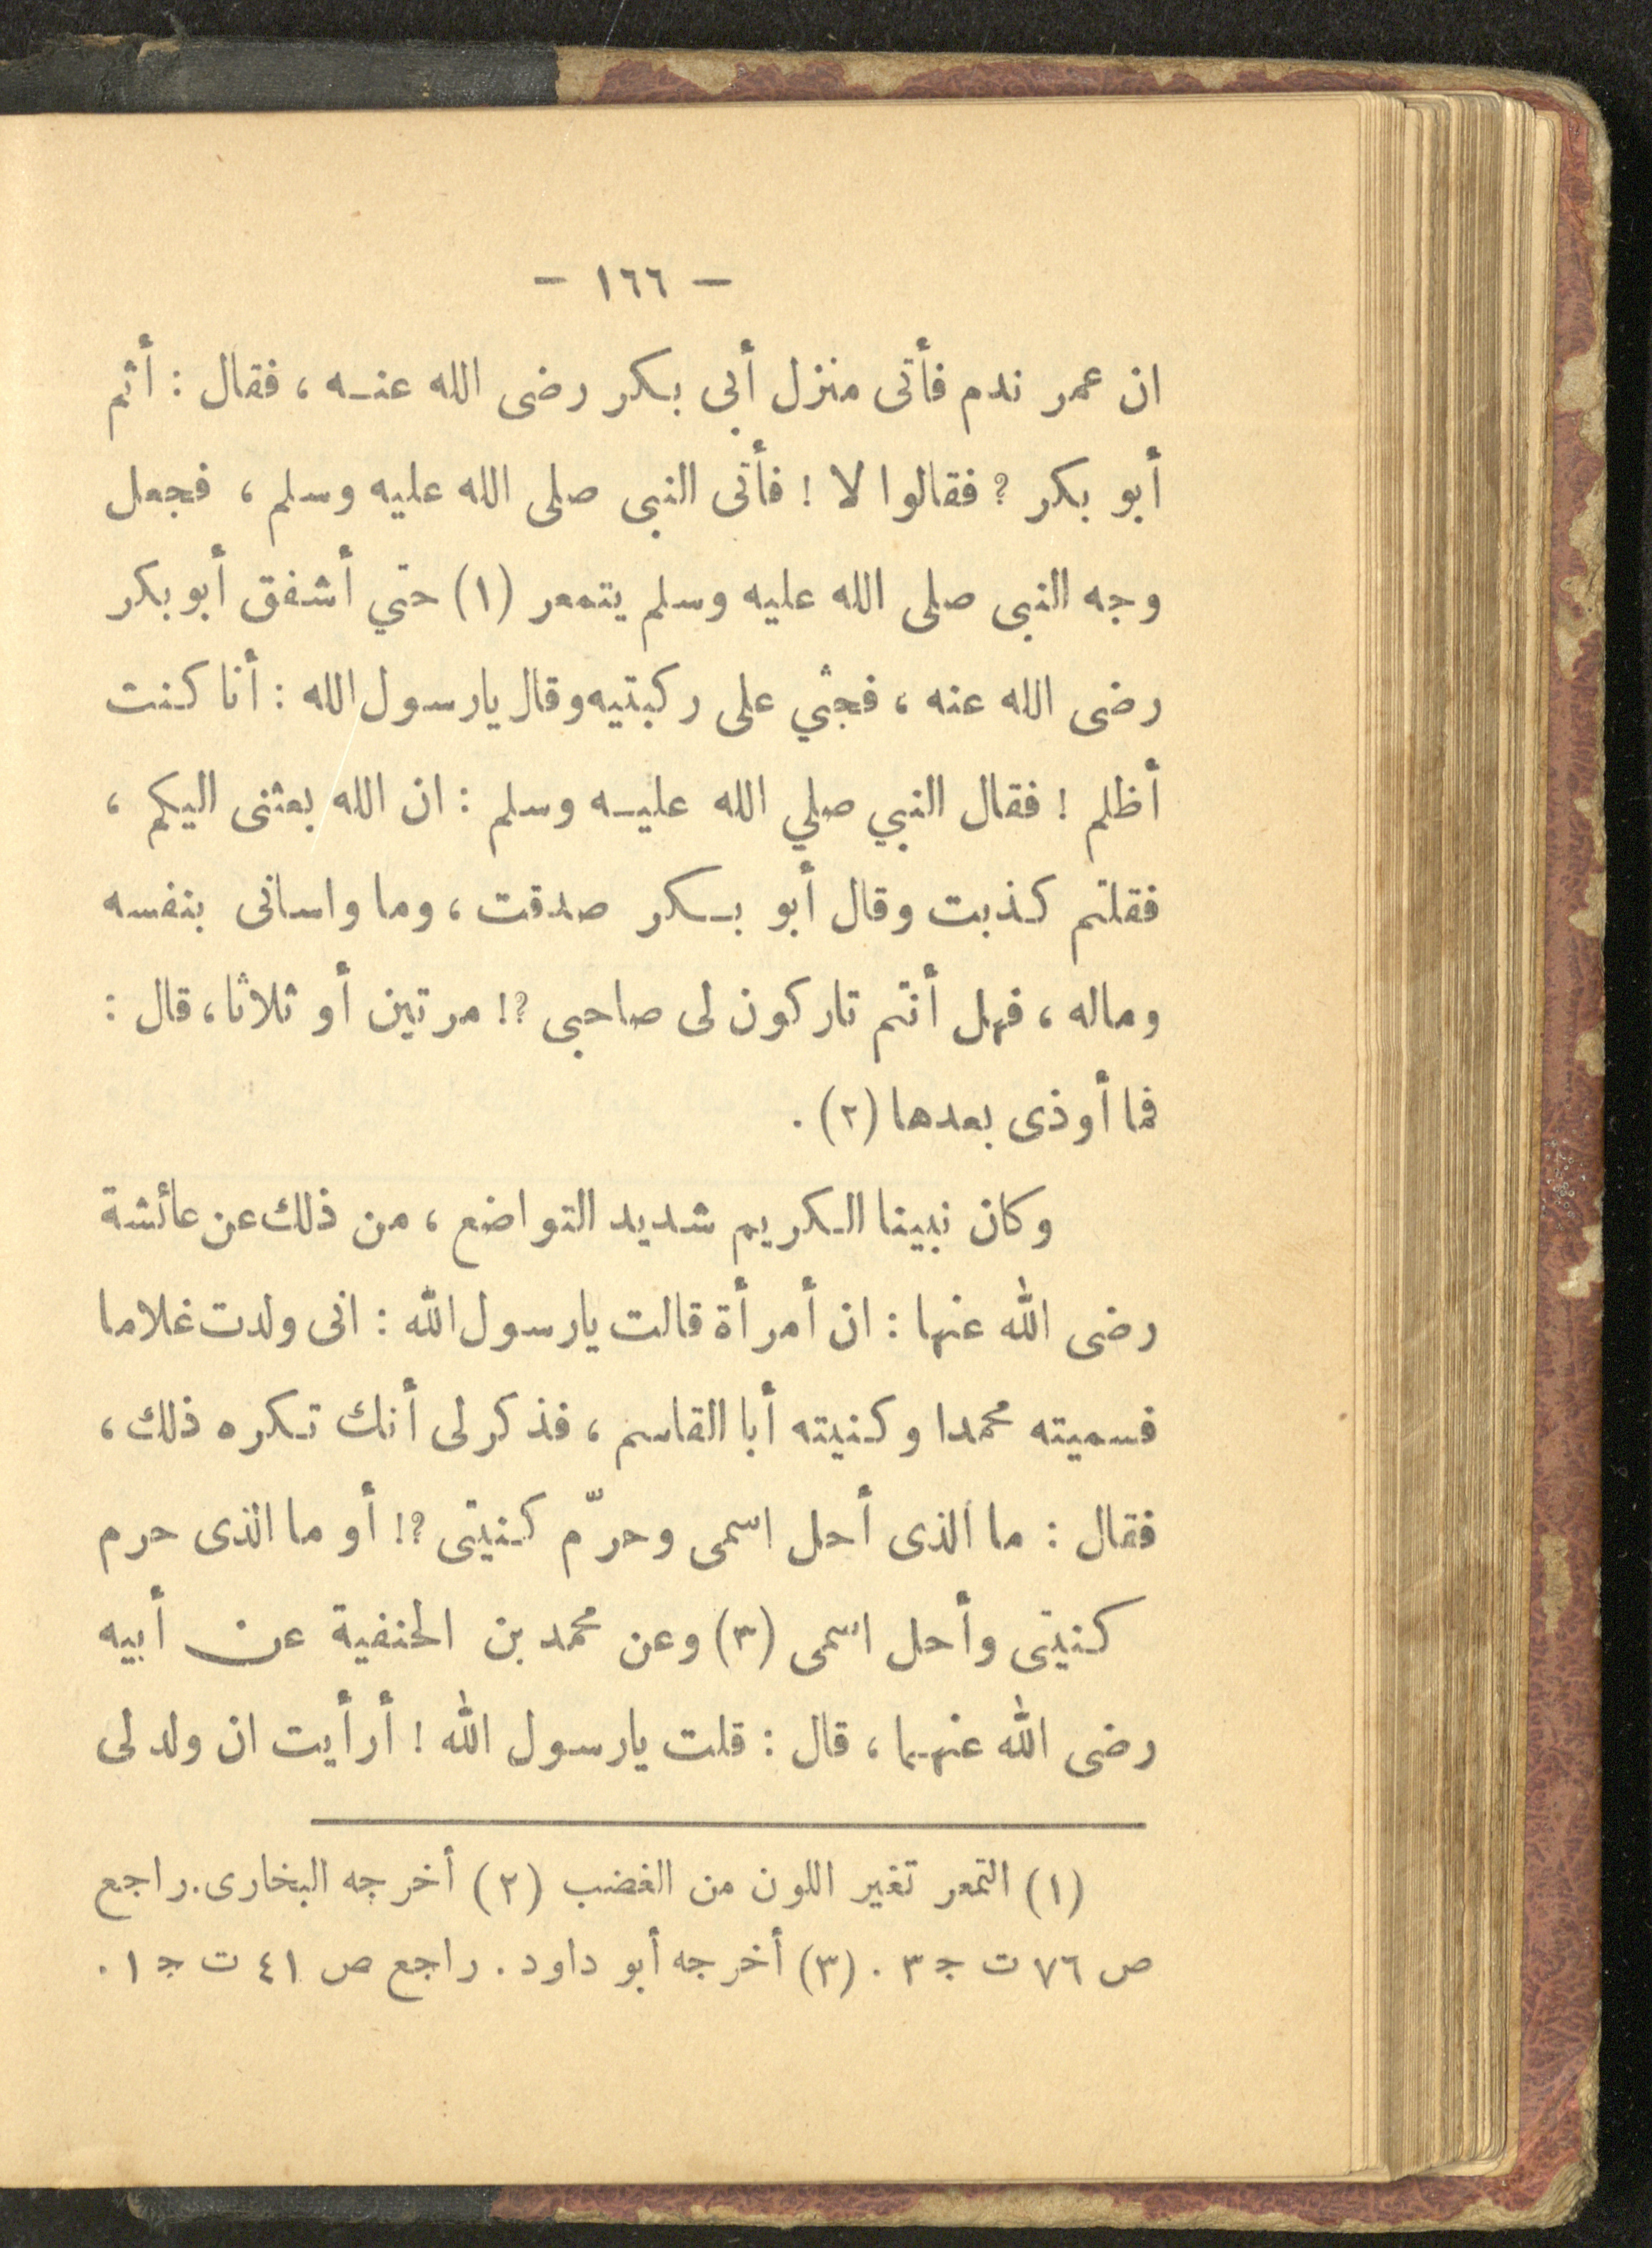 — ١٦٦ —
ان عمر ندم فأتى منزل أبي بكر رضى الله عنه ، فقال : أثم
أبو بكر ? فقالوا لا ! فأتى النبى صلى الله عليه وسلم ، فجعل
وجه النبى صلى الله عليه وسلم يتمعر (١) حتي أشفق أبو بكر
رضى الله عنه ، فجثي على ركبتيه وقال يارسول الله : أنا كنت
أظلم ! فقال النبي صلي الله عليه وسلم : ان الله بعثنى اليكم ،
فقلتم كذبت وقال أبو بكر صدقت ، وما واسانى بنفسه
وماله ، فهل أنتم تاركون لى صاحبى ?! مرتين أو ثلاثا ، قال :
فما أوذى بعدها (٢) .
وكان نبينا الكريم شديد التواضع ، من ذلك عن عائشة
رضى الله عنها : ان أمرأة قالت يارسول الله : انى ولدت غلاما
فسميته محمدا وكنيته أبا القاسم ، فذكر لى أنك تكره ذلك ،
فقال : ما الذى أحل اسمى وحرّم كنيتى ?! أو ما الذى حرم
كنيتى وأحل اسمى (٣) وعن محمد بن الحنفية عن أبيه
رضى الله عنهما ، قال : قلت يارسول الله ! أرأيت ان ولد لى
(١) التمعر تغير اللون من الغضب (٢) أخرجه البخارى . راجع
ص ٧٦ ت ج ٣ . (٣) أخرجه أبو داود . راجع ص ٤١ ت ج ١ .